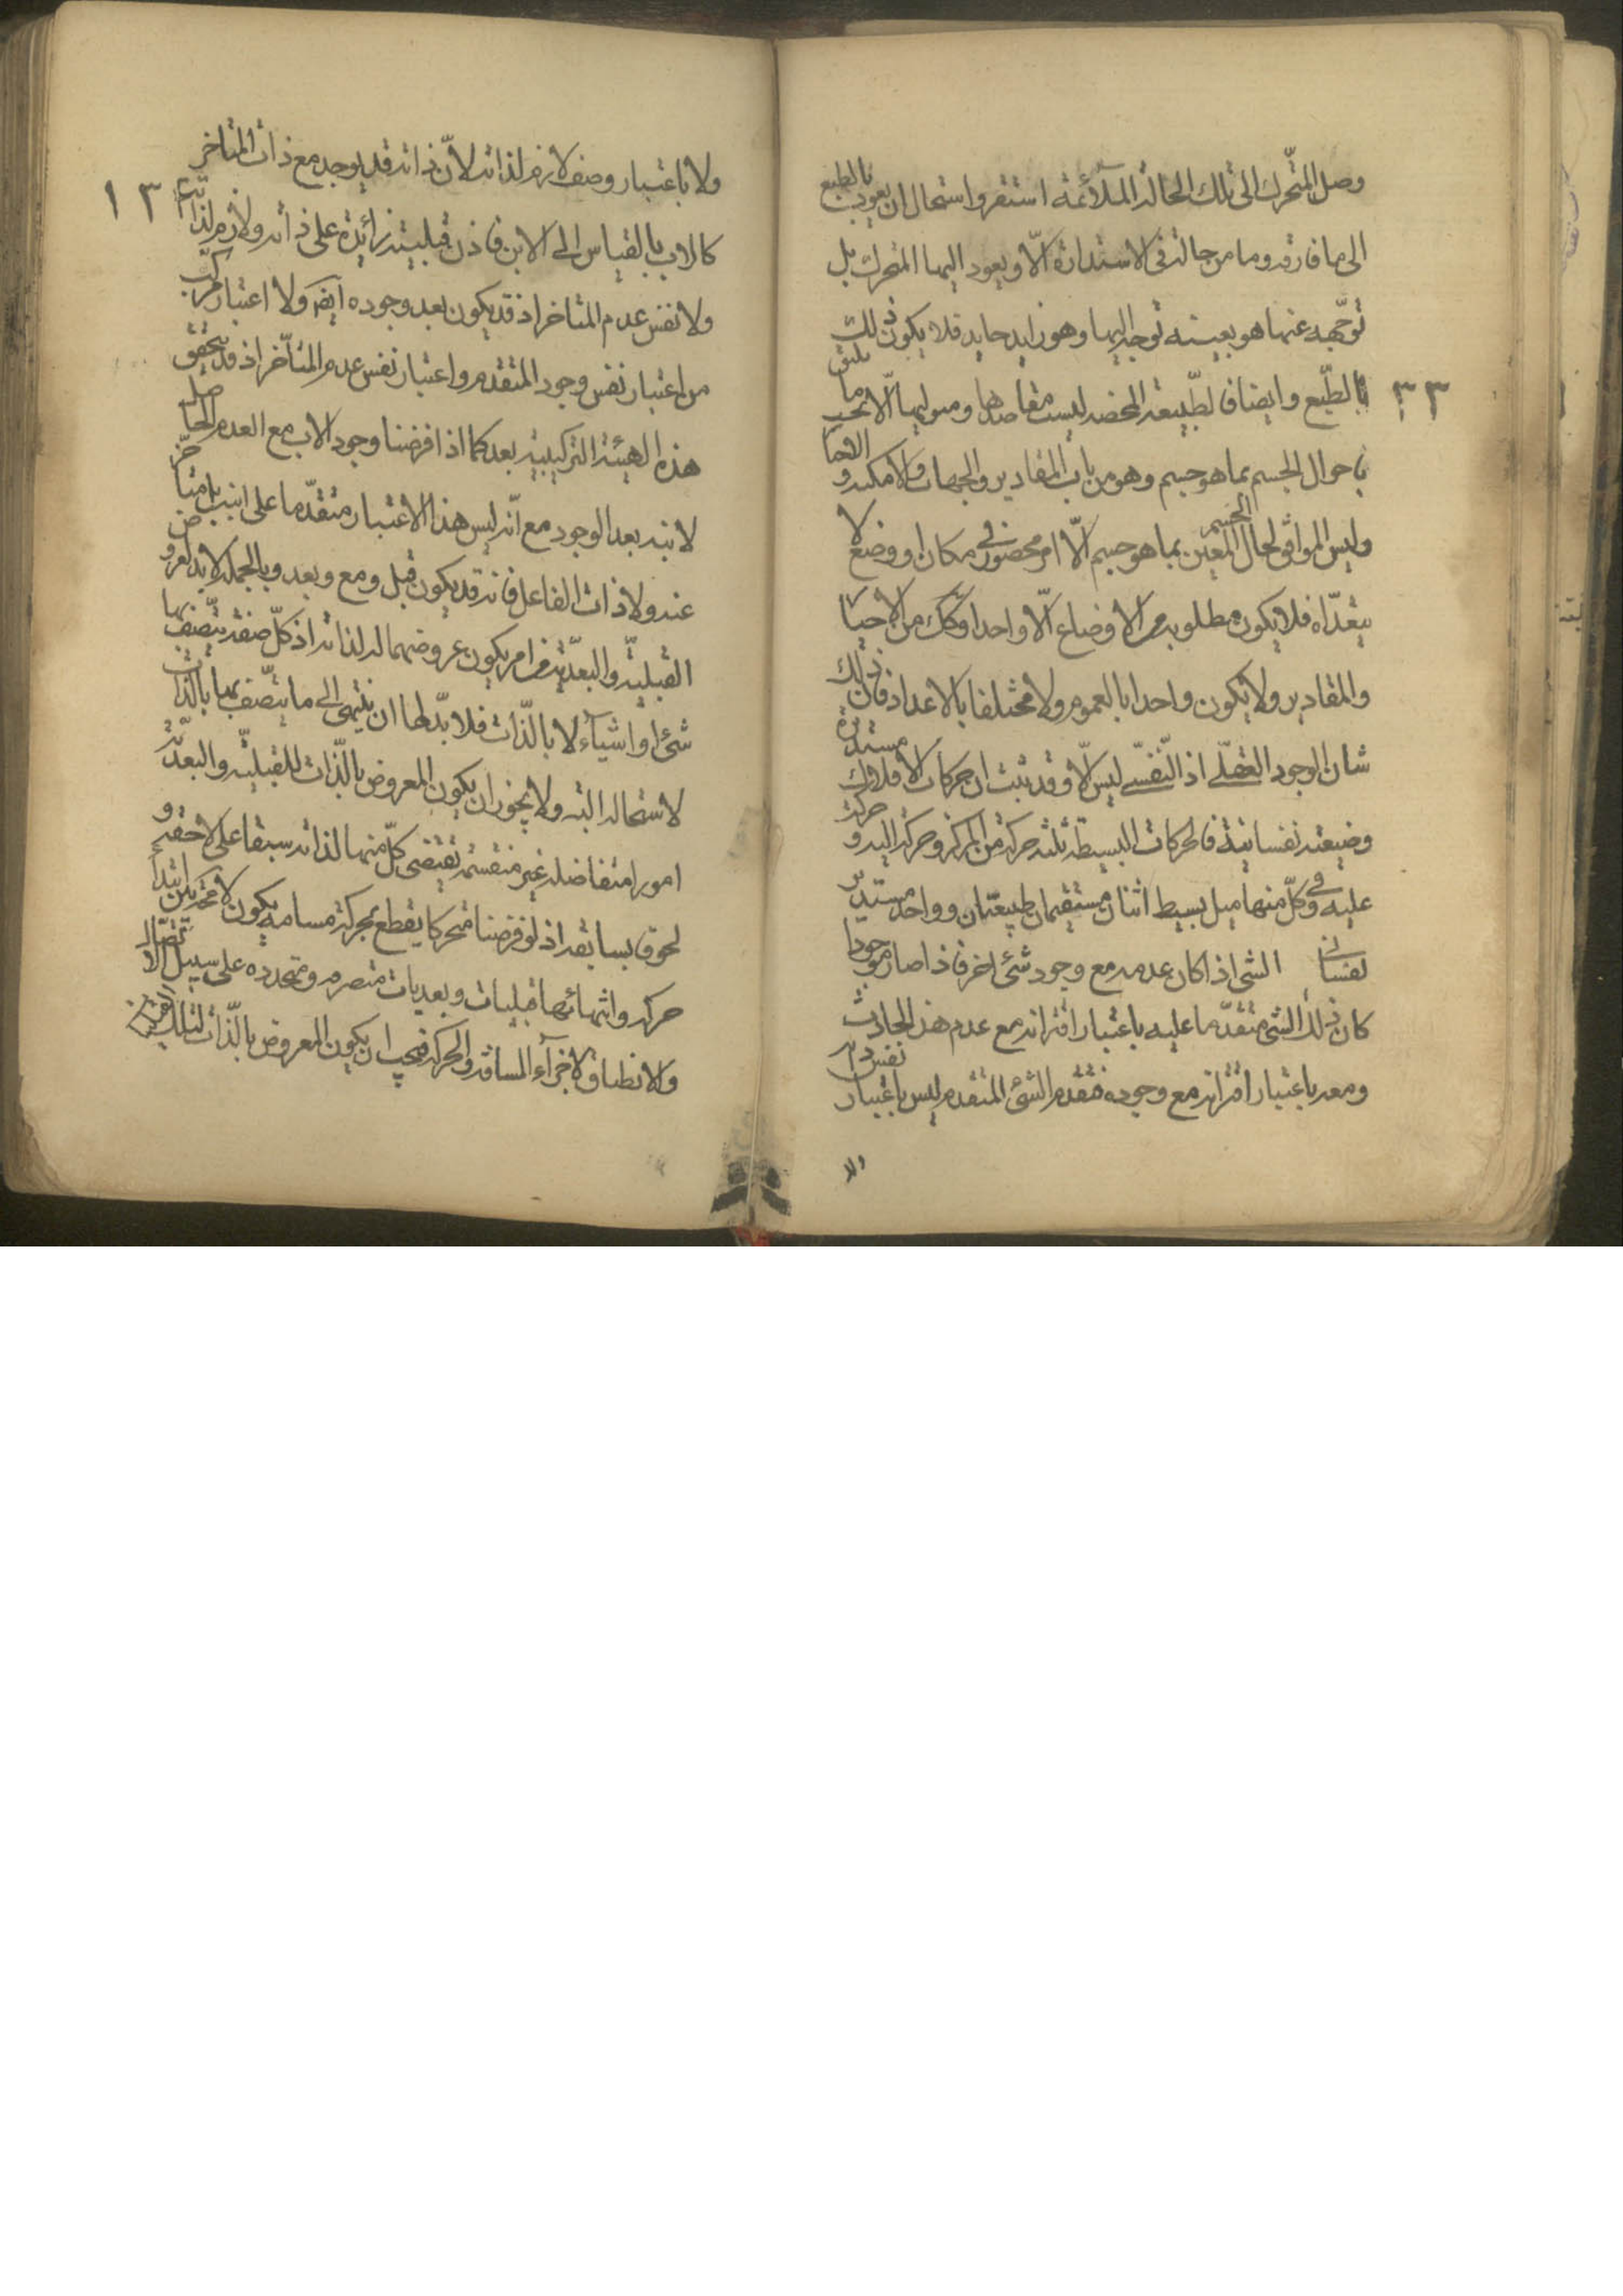 وصل المتحرك الى تلك الحالة الملائمة استقر واستحال ان يعود بالطبع
الى ما فارقه وما من حالة في الاستدارة الا ويعود اليها المتحرك بل
توجهه عنها هو بعينه توجه اليها وهو زايد حايد فلا يكون ذلك
٣٣
بالطبع وايضا فالطبيعة المحضة ليست مقاصدها وميولها الا نحو ما يليق
باحوال الجسم بما هو جسم وهو من باب المقادير والجهات والامكنة و الاحيا
وليس الموافق لحال الجسم المعين بما هو جسم الا امر محصور في مكان او وضع لا
يتعداه فلا يكون مطلوبه من الاوضاع الا واحدا وكك من الاحيا
والمقادير ولا يكون واحدا بالعموم ولا مختلفا بالاعداد فان ذلك
شان الوجود العقلي اذ النفسي ليس الا وقد ثبت ان حركات الافلاك مستديرة
وضيعته نفسانية فالحركات البسيطة ثلثة حركة من المركز وحركة اليه و حركة
عليه وفي كل منها ميل بسيط اثنان مستقيمان طبيعتان وواحد مستدير
نفساني الشي اذا كان عدمه مع وجود شئ اخر فاذا صار موجودا
كان ذلك الشي متقدما عليه باعتبار اقترانه مع عدم هذا الحادث
ومعه باعتبار اقترانه مع وجوده فتقدم الشئ المتقدم ليس باعتبار نفس ذاته
ولا
ولا باعتبار وصف لازم لذاته لان ذاته قد يوجد مع ذات المتاخر
١٣
كالاب بالقياس الى الابن فاذن قبليته زائدة على ذاته ولازم لذاته
ولا نفس عدم المتاخر اذ قد يكون بعد وجوده ايضا ولا اعتبار مركب
من اعتبار نفس وجود المتقدم واعتبار نفس عدم المتأخر اذ قد يتحقق
هذه الهيئة التركيبية بعد كما اذا فرضنا وجود الاب مع العدم الحاصل
لابنه بعد الوجود مع انه ليس هذا الاعتبار متقدما على ابنه بل متاخر
عنه ولا ذات الفاعل فانه قد يكون قبل ومع وبعد وبالجملة لا بد لعروض
القبلية والبعدية من امر يكون عروضهما له لذاته اذ كل صفة يتصف بها
شئ او اشياء لا بالذات فلا بد لها ان ينتهى الى ما يتصف بها بالذات
لاستحالة البته ولا يجوز ان يكون المعروض بالذات للقبلية والبعدية
امورا متفاضلة غير منقسمة تقتضى كل منها لذاته سبقا على لاحقه و
لحوق بسابقه اذ لو فرضنا متحركا يقطع بحركته مسافه يكون لا محة بين ابتداء
حركته وانتهائها قبليات وبعديات متصرمه ومتجدده على سبيل الاتصال
ولانطباق لاجزاء المسافة والحركة فيجب ان يكون المعروض بالذات لتلك